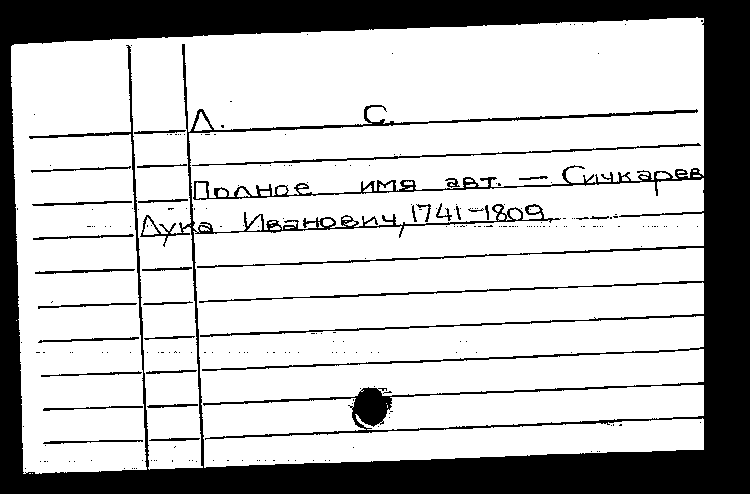 Л. С.
Полное имя авт. — Сичкарев
Лука Иванович, 1741-1809.